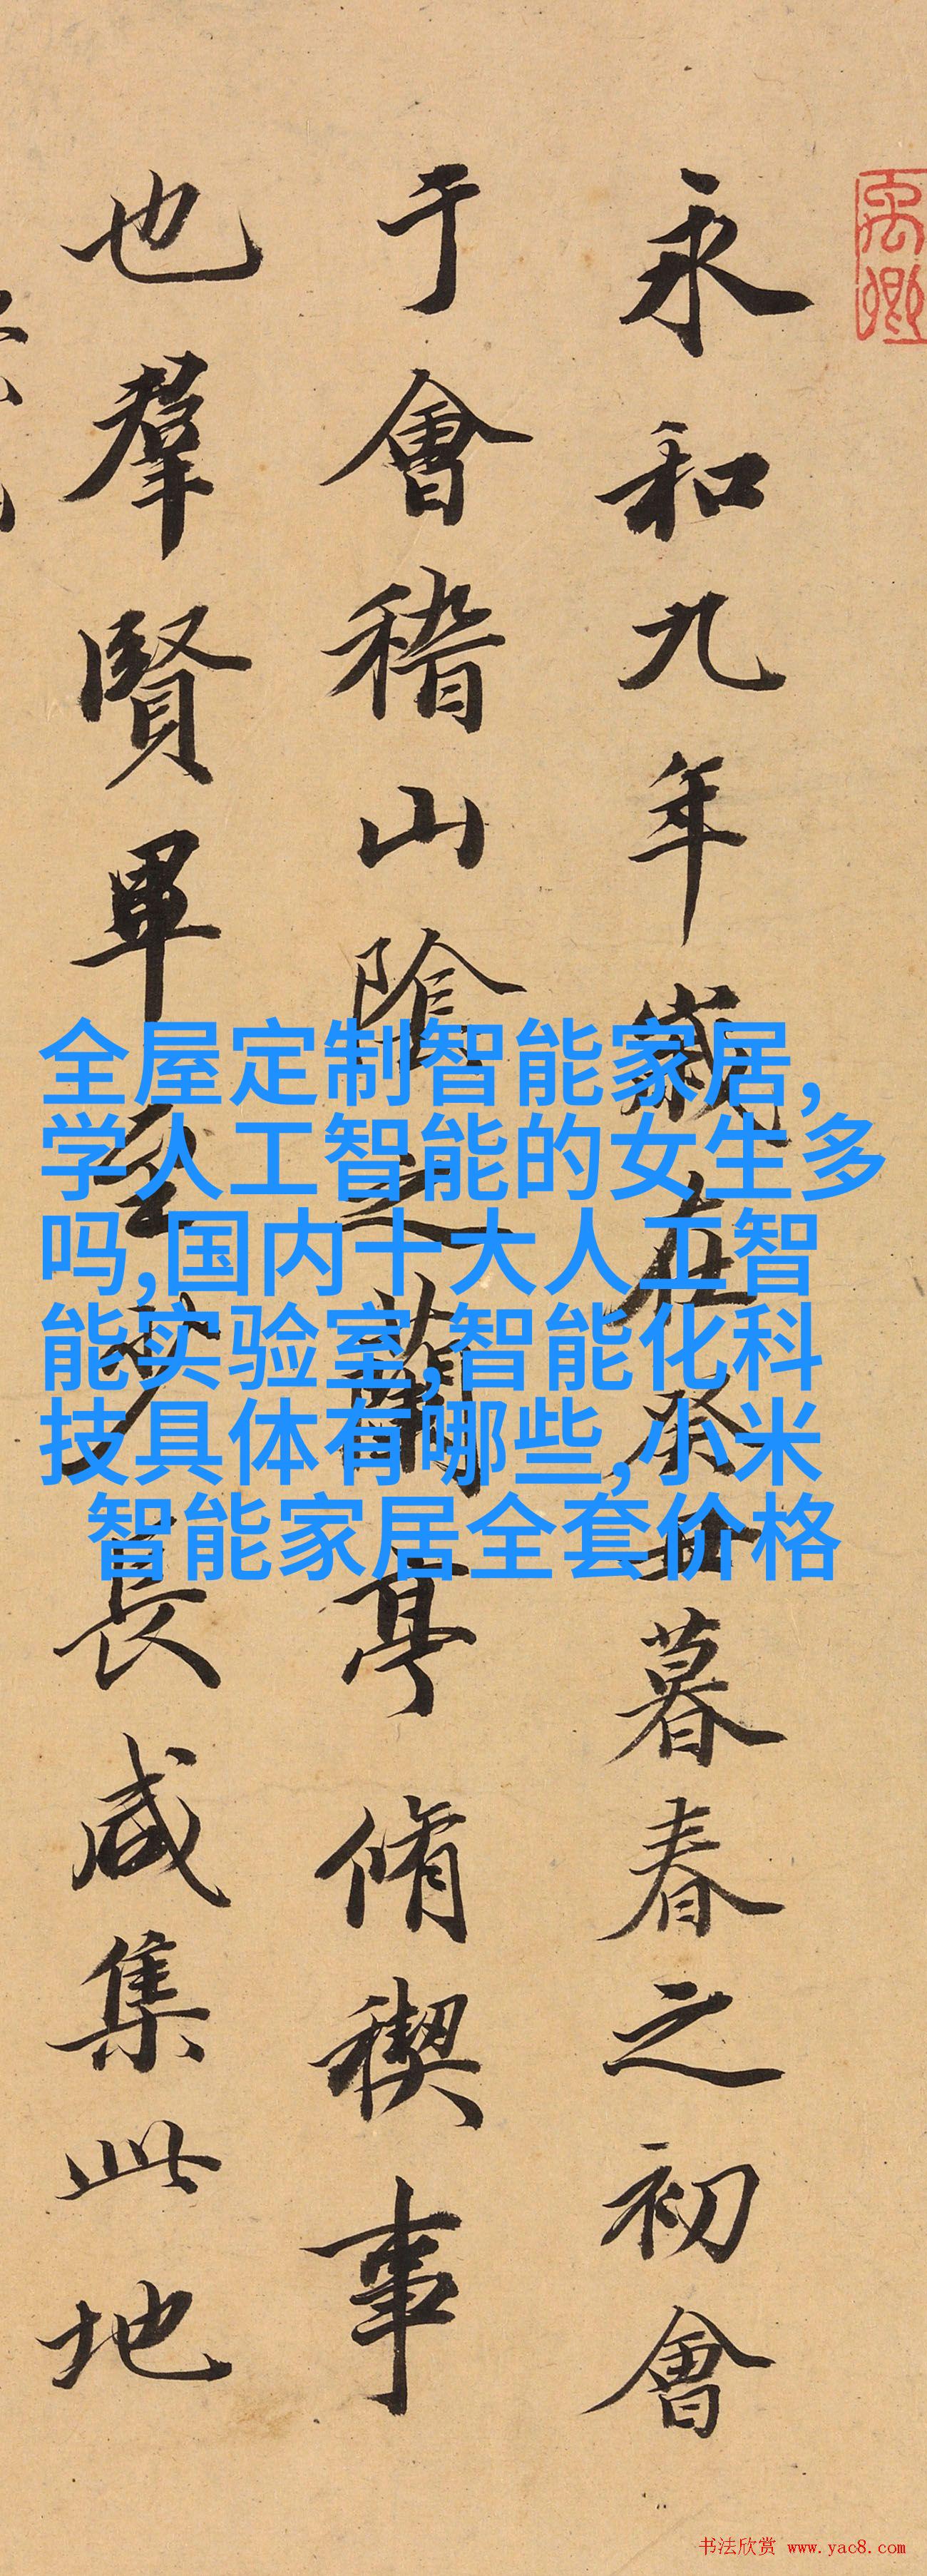 永和九年歲在癸丑暮春之初會
于會稽山陰之蘭亭脩稧事
也羣賢畢至少長咸集此地
全屋定制智能家居,
学人工智能的女生多
吗,国内十大人工智
能实验室,智能化科
技具体有哪些,小米
智能家居全套价格
书法欣赏 www.yac8.com